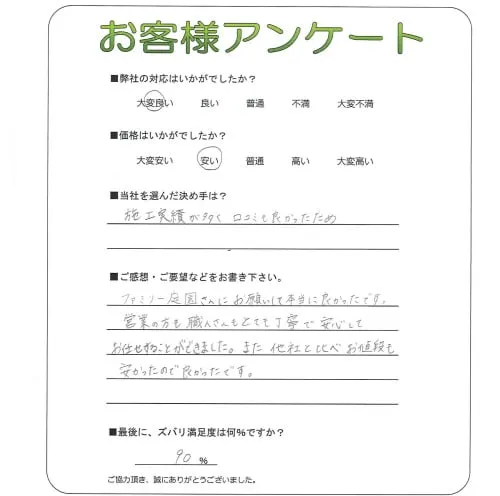 お客様アンケート
■弊社の対応はいかがでしたか？
大変良い 良い 普通 不満 大変不満
■価格はいかがでしたか？
大変安い 安い 普通 高い 大変高い
■当社を選んだ決め手は？
施工実績が多く 口コミも良かったため
■ご感想・ご要望などをお書き下さい。
ファミリー庭園さんにお願いして本当に良かったです。
営業の方も職人さんもとても丁寧で安心して
お任せすることができました。また他社と比べお値段も
安かったので良かったです。
■最後に、ズバリ満足度は何%ですか？
90 %
ご協力頂き、誠にありがとうございました。